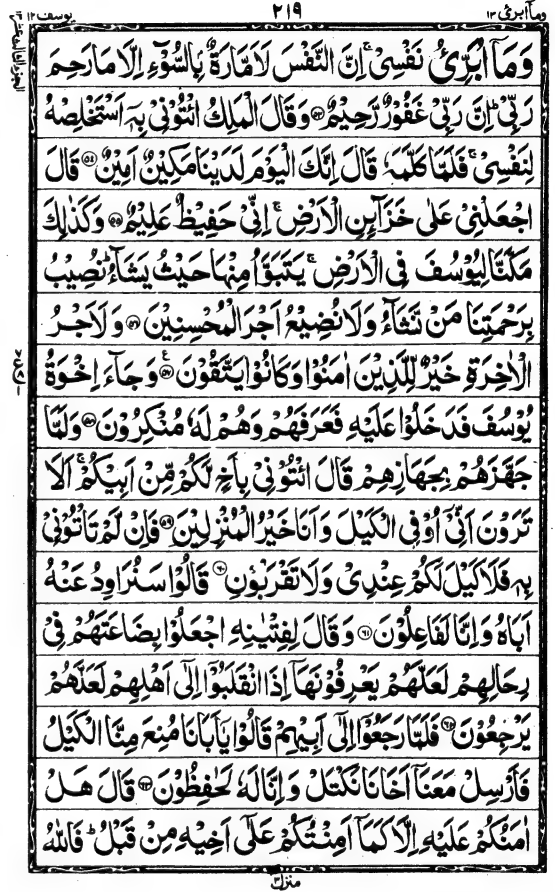 وما ابرئ ١٣
٢١٩
يوسف ١٢
وَمَآ اُبَرِّئُ نَفْسِىْ ۚ اِنَّ النَّفْسَ لَاَمَّارَةٌۢ بِالسُّوْٓءِ اِلَّا مَا رَحِمَ
رَبِّىْ ؕ اِنَّ رَبِّىْ غَفُوْرٌ رَّحِيْمٌ ﴿۵۳﴾ وَقَالَ الْمَلِكُ ائْتُوْنِىْ بِهٖۤ اَسْتَخْلِصْهُ
لِنَفْسِىْ ۚ فَلَمَّا كَلَّمَهٗ قَالَ اِنَّكَ الْيَوْمَ لَدَيْنَا مَكِيْنٌ اَمِيْنٌ ﴿۵۴﴾ قَالَ
اجْعَلْنِىْ عَلٰى خَزَآئِنِ الْاَرْضِ ۚ اِنِّىْ حَفِيْظٌ عَلِيْمٌ ﴿۵۵﴾ وَكَذٰلِكَ
مَكَّنَّا لِيُوْسُفَ فِى الْاَرْضِ ۚ يَتَبَوَّاُ مِنْهَا حَيْثُ يَشَآءُ ؕ نُصِيْبُ
بِرَحْمَتِنَا مَنْ نَّشَآءُ وَلَا نُضِيْعُ اَجْرَ الْمُحْسِنِيْنَ ﴿۵۶﴾ وَلَاَجْرُ
الْاٰخِرَةِ خَيْرٌ لِّلَّذِيْنَ اٰمَنُوْا وَكَانُوْا يَتَّقُوْنَ ﴿۵۷﴾ وَجَآءَ اِخْوَةُ
يُوْسُفَ فَدَخَلُوْا عَلَيْهِ فَعَرَفَهُمْ وَهُمْ لَهٗ مُنْكِرُوْنَ ﴿۵۸﴾ وَلَمَّا
جَهَّزَهُمْ بِجَهَازِهِمْ قَالَ ائْتُوْنِىْ بِاَخٍ لَّكُمْ مِّنْ اَبِيْكُمْ ۚ اَلَا
تَرَوْنَ اَنِّىْۤ اُوْفِى الْكَيْلَ وَاَنَا خَيْرُ الْمُنْزِلِيْنَ ﴿۵۹﴾ فَاِنْ لَّمْ تَاْتُوْنِىْ
بِهٖ فَلَا كَيْلَ لَكُمْ عِنْدِىْ وَلَا تَقْرَبُوْنِ ﴿۶۰﴾ قَالُوْا سَنُرَاوِدُ عَنْهُ
اَبَاهُ وَاِنَّا لَفَاعِلُوْنَ ﴿۶۱﴾ وَقَالَ لِفِتْيٰنِهِ اجْعَلُوْا بِضَاعَتَهُمْ فِىْ
رِحَالِهِمْ لَعَلَّهُمْ يَعْرِفُوْنَهَاۤ اِذَا انْقَلَبُوْۤا اِلٰٓى اَهْلِهِمْ لَعَلَّهُمْ
يَرْجِعُوْنَ ﴿۶۲﴾ فَلَمَّا رَجَعُوْۤا اِلٰٓى اَبِيْهِمْ قَالُوْا يٰۤاَبَانَا مُنِعَ مِنَّا الْكَيْلُ
فَاَرْسِلْ مَعَنَاۤ اَخَانَا نَكْتَلْ وَاِنَّا لَهٗ لَحٰفِظُوْنَ ﴿۶۳﴾ قَالَ هَلْ
اٰمَنُكُمْ عَلَيْهِ اِلَّا كَمَاۤ اَمِنْتُكُمْ عَلٰٓى اَخِيْهِ مِنْ قَبْلُ ؕ فَاللّٰهُ
منزل ٣